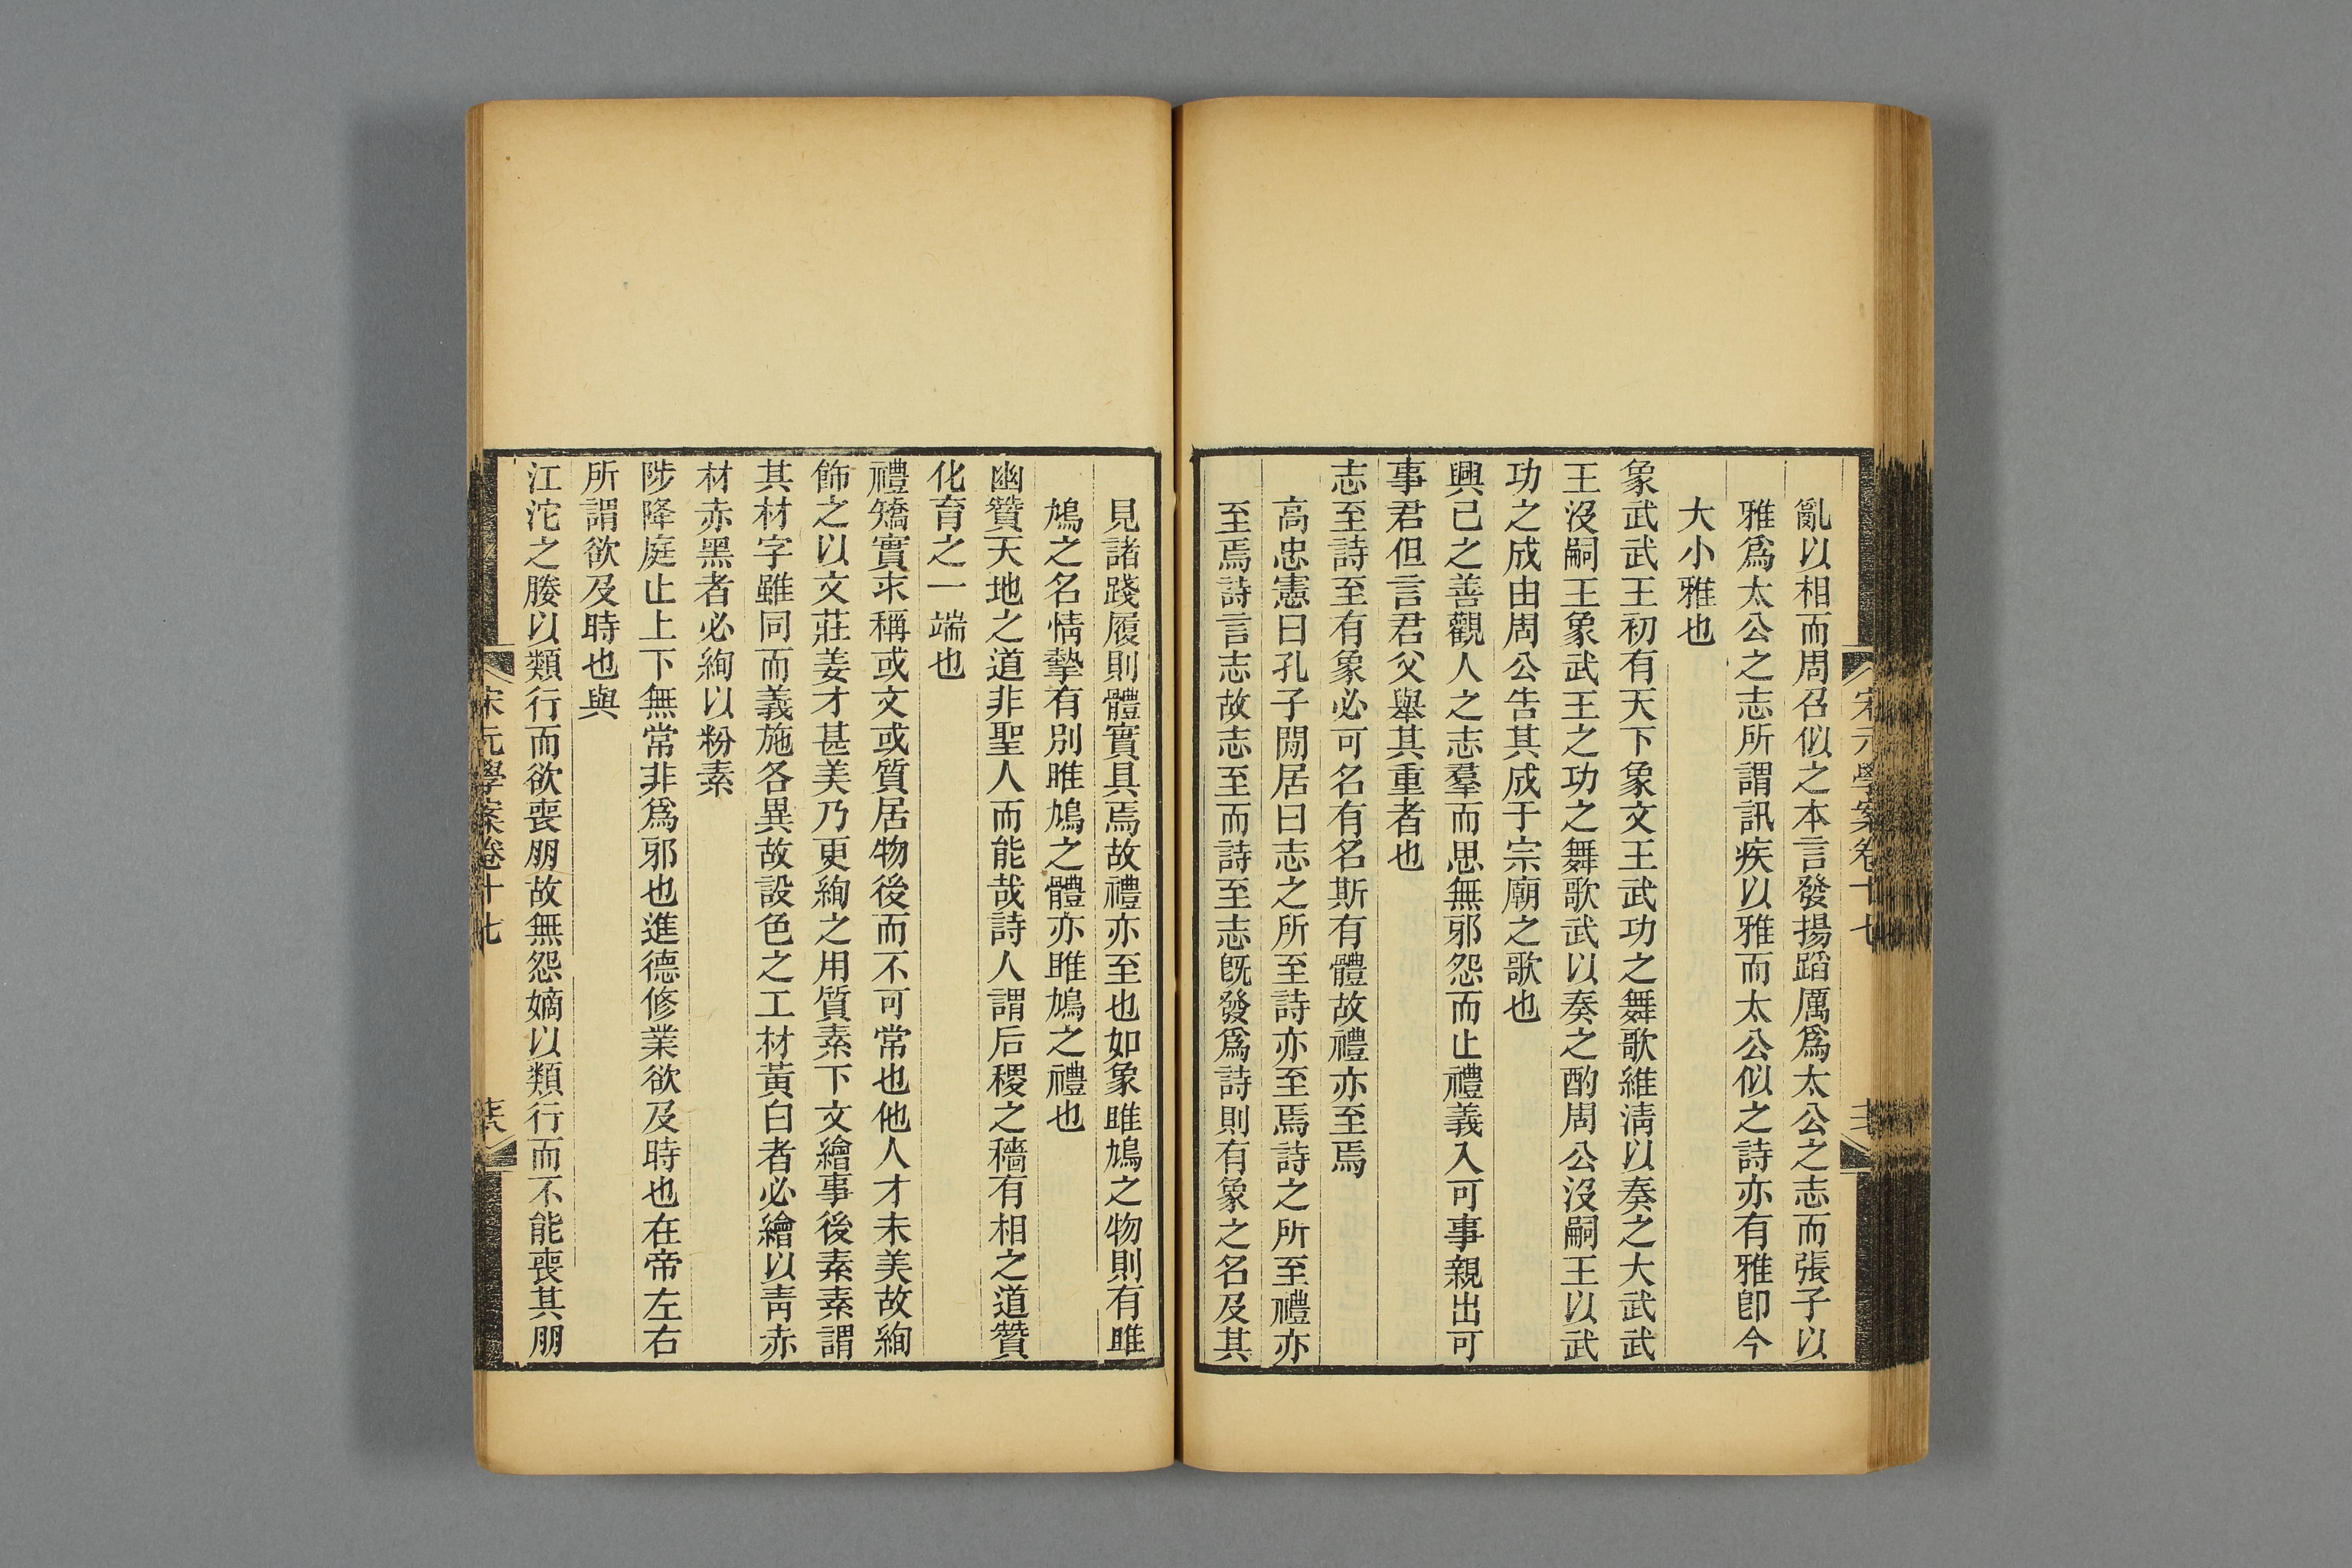 亂以相而周召似之本言發揚蹈厲爲太公之志而張子以
雅爲太公之志所謂訊疾以雅而太公似之詩亦有雅卽今
大小雅也
象武武王初有天下象文王武功之舞歌維淸以奏之大武武
王沒嗣王象武王之功之舞歌武以奏之酌周公沒嗣王以武
功之成由周公告其成于宗廟之歌也
興己之善觀人之志羣而思無邪怨而止禮義入可事親出可
事君但言君父舉其重者也
志至詩至有象必可名有名斯有體故禮亦至焉
高忠憲曰孔子閒居曰志之所至詩亦至焉詩之所至禮亦
至焉詩言志故志至而詩至志旣發爲詩則有象之名及其
見諸踐履則體實具焉故禮亦至也如象雎鳩之物則有雎
鳩之名情摯有別雎鳩之體亦雎鳩之禮也
幽贊天地之道非聖人而能哉詩人謂后稷之穡有相之道贊
化育之一端也
禮矯實求稱或文或質居物後而不可常也他人才未美故絢
飾之以文莊姜才甚美乃更絢之用質素下文繪事後素素謂
其材字雖同而義施各異故設色之工材黃白者必繪以靑赤
材赤黑者必絢以粉素
陟降庭止上下無常非爲邪也進德修業欲及時也在帝左右
所謂欲及時也與
江沱之媵以類行而欲喪朋故無怨嫡以類行而不能喪其朋
宋元學案卷十七